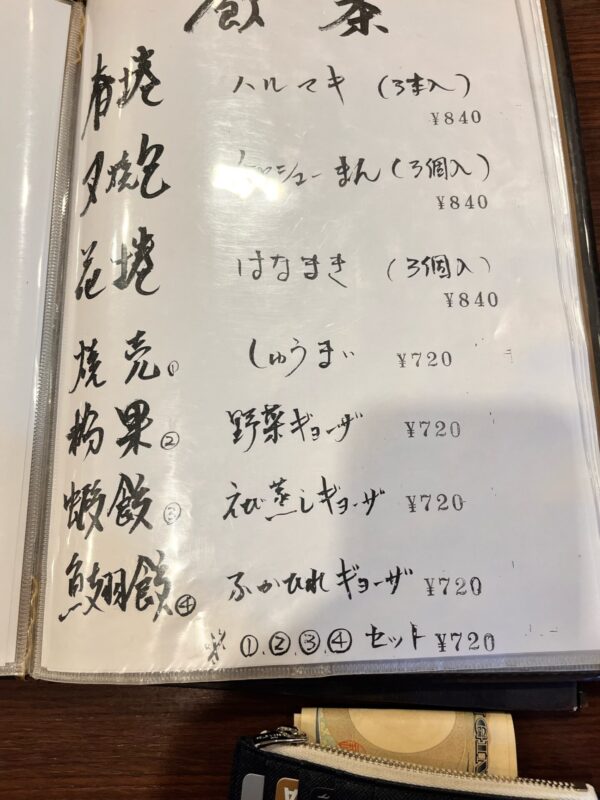 飲茶
春捲 ハルマキ (3本入)
¥840
叉焼包 チャーシューまん (3個入)
¥840
花捲 はなまき (3個入)
¥840
焼売① しゅうまい ¥720
粉果② 野菜ギョーザ ¥720
蝦餃③ えび蒸しギョーザ ¥720
魚翅餃④ ふかひれギョーザ ¥720
※①.②.③.④ セット ¥720